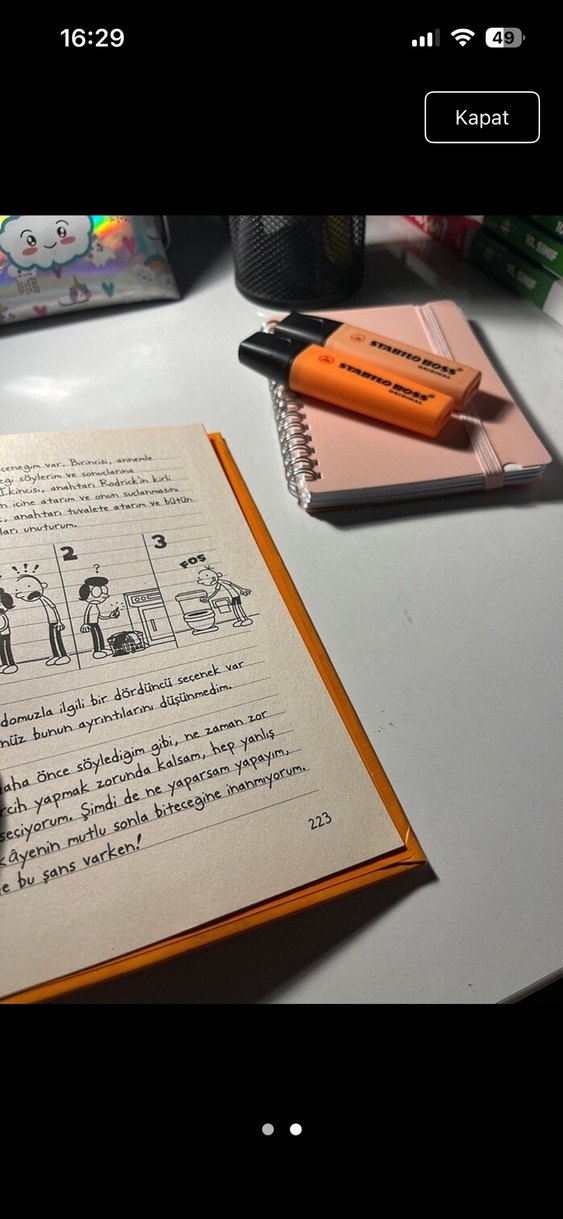 16:29
49
Kapat
10. SINIF
10. SINIF
STABILO BOSS
ORIGINAL
STABILO BOSS
ORIGINAL
var. Birincisi, annemle
söylerim ve sonuçlarına
İkincisi, anahtarı Rodrick'in kirli
içine atarım ve onun suçlanmasını
anahtarı tuvalete atarım ve bütün
unuturum.
!!!
2
?
3
FOŞ
domuzla ilgili bir dördüncü seçenek var
bunun ayrıntılarını düşünmedim.
önce söylediğim gibi, ne zaman zor
yapmak zorunda kalsam, hep yanlış
seçiyorum. Şimdi de ne yaparsam yapayım,
mutlu sonla biteceğine inanmıyorum.
bu şans varken!
223